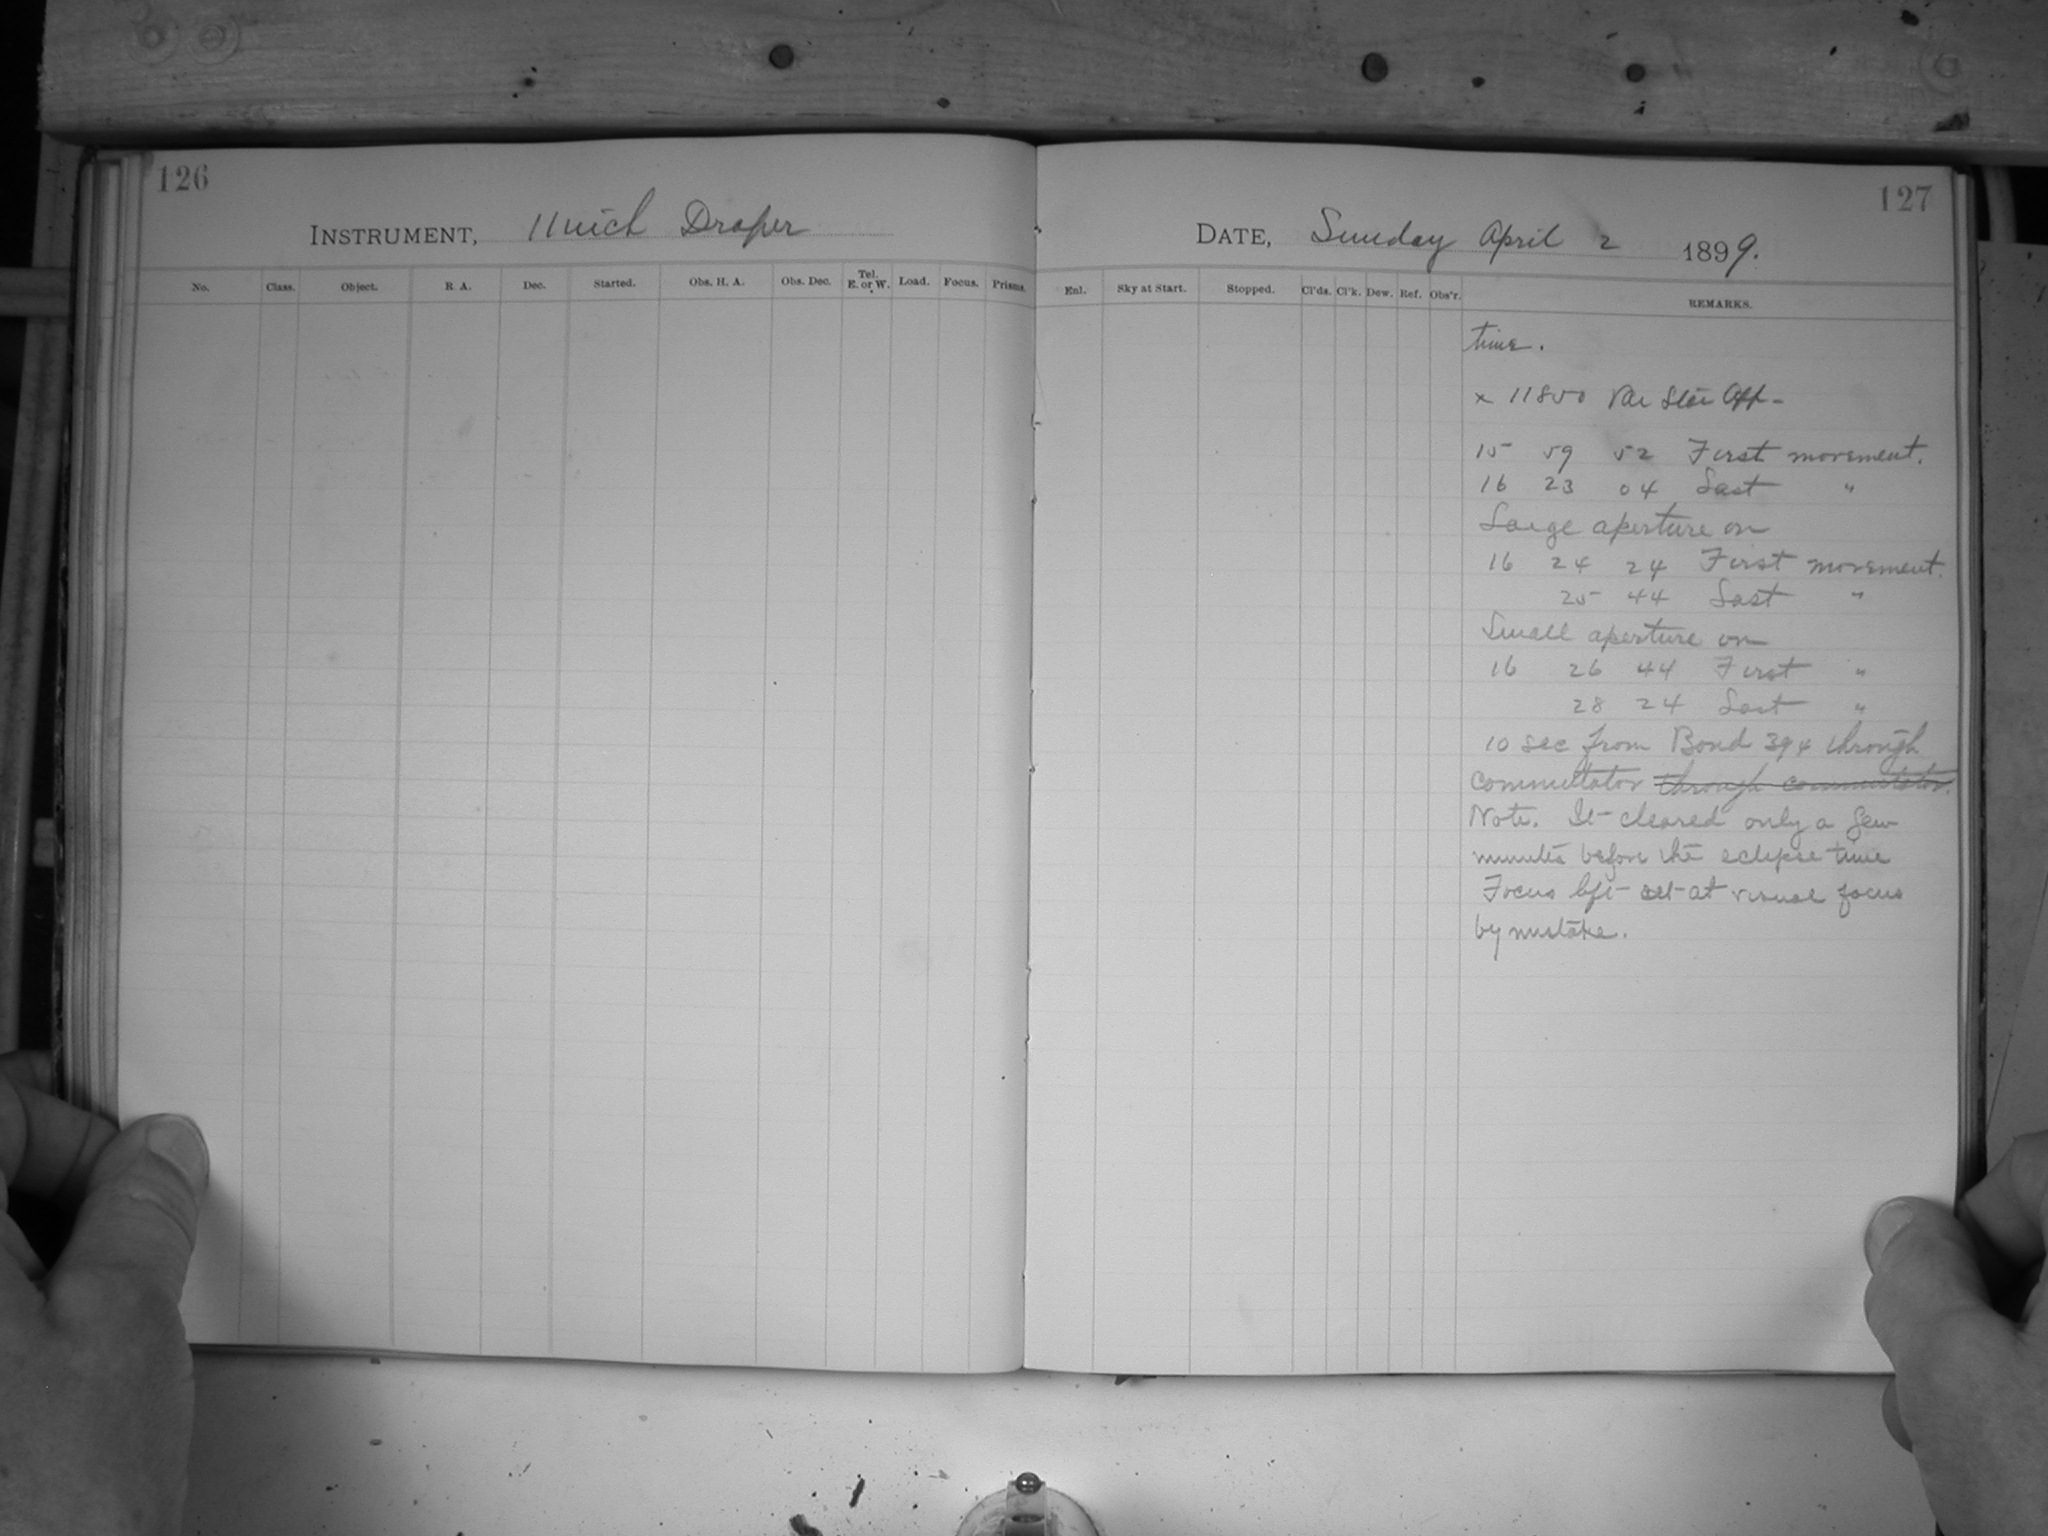 126
INSTRUMENT, 11 inch Draper
No. Class. Object. R. A. Dec. Started. Obs. H. A. Obs. Dec. Tel. E. or W. Load. Focus. Prisms.
127
DATE, Sunday April 2 1899.
Enl. Sky at Start. Stopped. Cl'ds. Cl'k. Dew. Ref. Obs'r. REMARKS.
time.
x 11850 Var Star App-
15 59 52 First movement.
16 23 04 Last "
Large aperture on
16 24 24 First movement.
25 44 Last "
Small aperture on
16 26 44 First "
28 24 Last "
10 sec from Bond 394 through
commutator through commutator.
Note. It cleared only a few
minutes before the eclipse time
Focus left set at visual focus
by mistake.